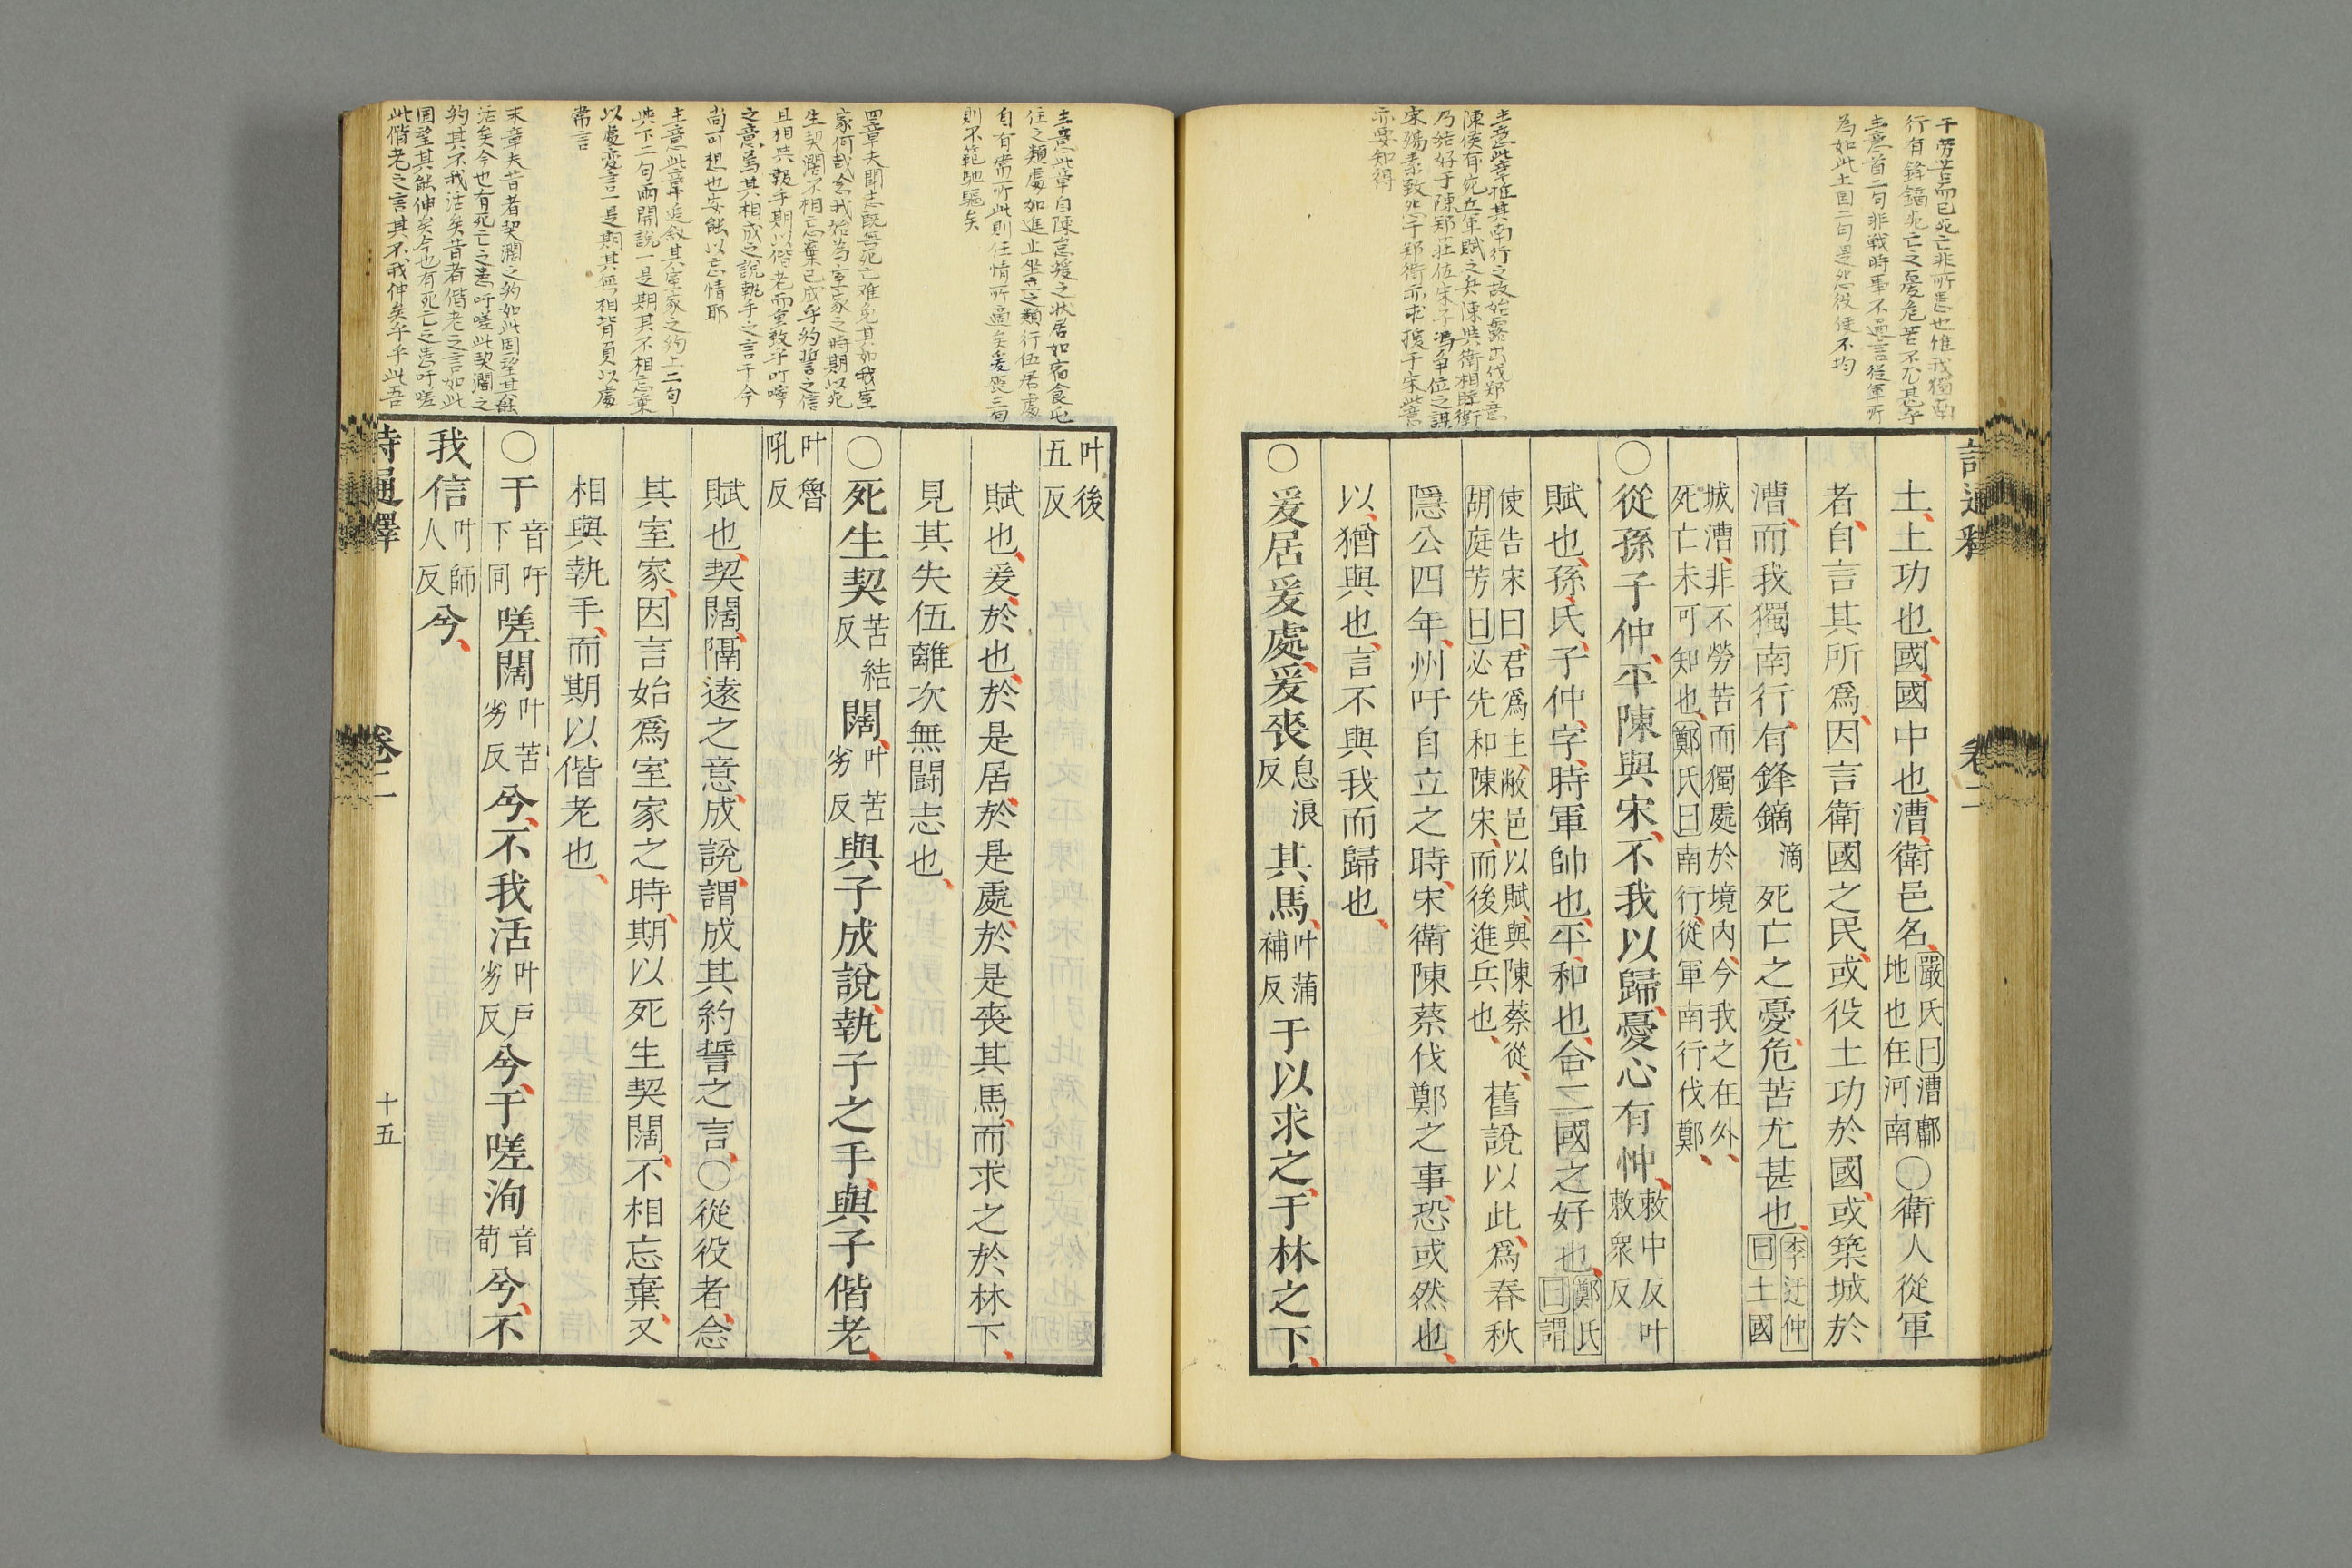 土土功也國國中也漕衛邑名嚴氏曰漕鄘地也在河南○衛人從軍
者自言其所爲因言衛國之民或役土功於國或築城於
漕而我獨南行有鋒鏑滴死亡之憂危苦尤甚也李迂仲曰土國
城漕非不勞苦而獨處於境内今我之在外
死亡未可知也鄭氏曰南行從軍南行伐鄭
○從孫子仲平陳與宋不我以歸憂心有忡敕中反叶敕衆反
賦也孫氏子仲字時軍帥也平和也合二國之好也鄭氏曰謂
使告宋曰君爲主敝邑以賦與陳蔡從
胡庭芳曰必先和陳宋而後進兵也舊說以此爲春秋
隱公四年州吁自立之時宋衛陳蔡伐鄭之事恐或然也
以猶與也言不與我而歸也
○爰居爰處爰喪息浪反其馬叶蒲補反于以求之于林之下
叶後五反
賦也爰於也於是居於是處於是喪其馬而求之於林下
見其失伍離次無鬪志也
○死生契苦結反闊叶苦劣反與子成說執子之手與子偕老
叶魯吼反
賦也契闊隔遠之意成說謂成其約誓之言○從役者念
其室家因言始爲室家之時期以死生契闊不相忘棄又
相與執手而期以偕老也
○于音吁下同嗟闊叶苦劣反兮不我活叶戶劣反兮于嗟洵音荀兮不
我信叶師人反兮
卷二
十五
干勞苦而已死亡非所患也惟我獨南
行有鋒鏑死亡之憂危苦不尤甚乎
主意首二句非戰時事不過言從軍所
為如此土国二句是怨役使不均
主意此章推其南行之故始露出伐郑意
陳侯有宛丘軍賦之兵陳與衛相睦衛
宋殤素致怨于郑衛亦求援于宋此意
亦要知得
主意此章自陳怠緩之狀居如宿食屯
住之類處如進止坐立之類行伍居處
自有常所此則任情所適矣爰喪三句
則不範馳驅矣
四章夫鬪志既無死亡难免其如我室
家何哉念我始為室家之時期以死
生契濶不相忘棄已成乎約誓之信
且相與執手期以偕老而重致乎叮嚀
之意焉其相成之說執手之言于今
尚可想也安能以忘情耶
主意此章追叙其室家之約上二句
與下二句兩開說一是期其不相忘棄
以處变言一是期其無相背負以處
常言
末章夫昔者契濶之約如此固望其能
活矣今也有死亡之患吁嗟此契濶之
約其不我活矣昔者偕老之言如此
固望其能伸矣今也有死亡之患吁嗟
此偕老之言其不我伸矣乎乎此吾